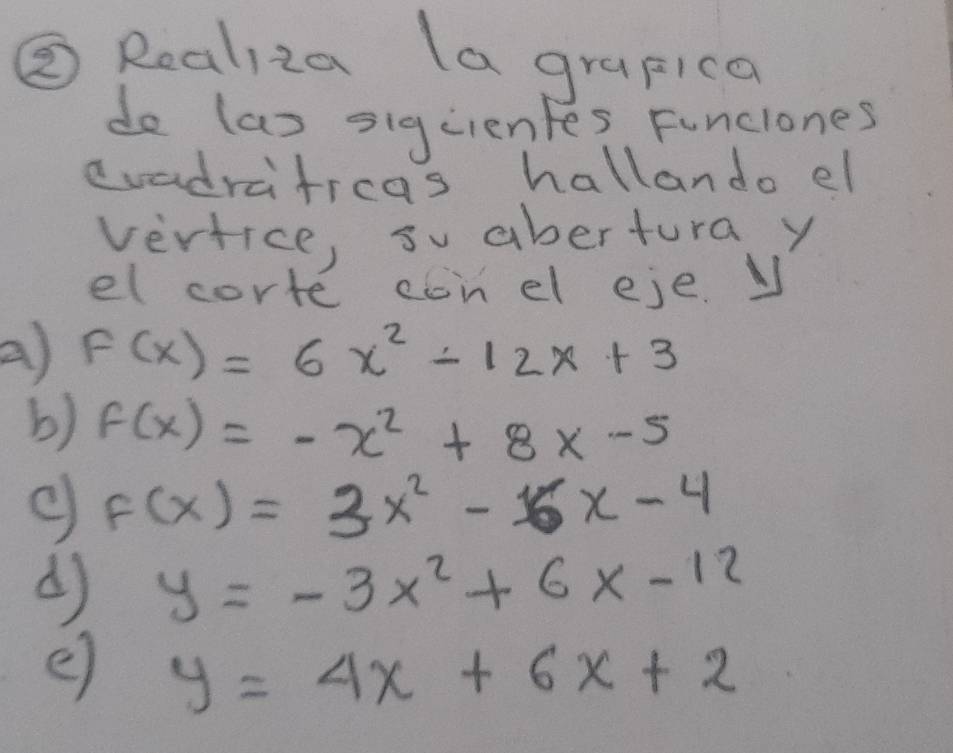 ② Realiza la grafica
de las sigcientes funciones
cuadráticas hallando el
vértice, su abertura y
el corte con el eje. y
a) F(x) = 6x² - 12x + 3
b) F(x) = -x² + 8x - 5
c) F(x) = 3x² - 6x - 4
d) y = -3x² + 6x - 12
e) y = 4x + 6x + 2